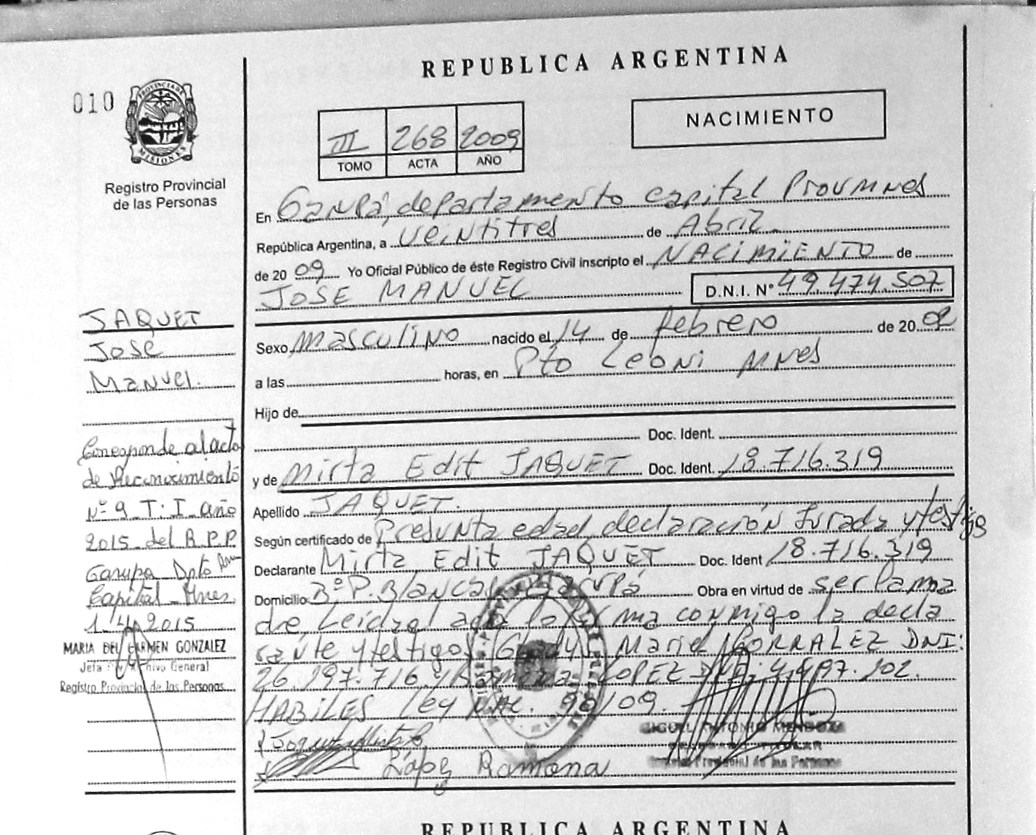 REPUBLICA ARGENTINA
010
PROVINCIA DE MISIONES
Registro Provincial
de las Personas
III 268 2009
TOMO ACTA AÑO
NACIMIENTO
En Garupá, departamento capital Prov Mnes
República Argentina, a veintitres de Abril
de 2009 Yo Oficial Público de éste Registro Civil inscripto el NACIMIENTO de
JOSE MANUEL D.N.I. Nº 49.474.507
Sexo masculino nacido el 14 de febrero de 2002
a las horas, en Pto Leoni Mnes
Hijo de
Doc. Ident.
y de Mirta Edit JAQUET Doc. Ident. 18.716.319
Apellido JAQUET.
Según certificado de Presunta edad, declaración Jurada y testigs
Declarante Mirta Edit JAQUET Doc. Ident 18.716.319
Domicilio Bº P. Blanca Garupá Obra en virtud de ser la ma
dre Leida el acta la firma conmigo la decla
rante y testigos Gladys Mariel CORRALEZ DNI:
26.197.716 y Ramona LOPEZ DNI: 4.497.102.
HABILES Ley NAC. 90/09.
López Ramona
MIGUEL ANTONIO MENDOZA
DELEGADO TITULAR
Registro Provincial de las Personas
JAQUET
José
Manuel.
Corresponde al acta
de Reconocimiento
Nº 9 T: I año
2015 del R.P.P.
Garupa Dpto
Capital Mnes.
1/4/2015
MARIA DEL CARMEN GONZALEZ
Jefa Archivo General
Registro Provincial de las Personas
REPUBLICA ARGENTINA